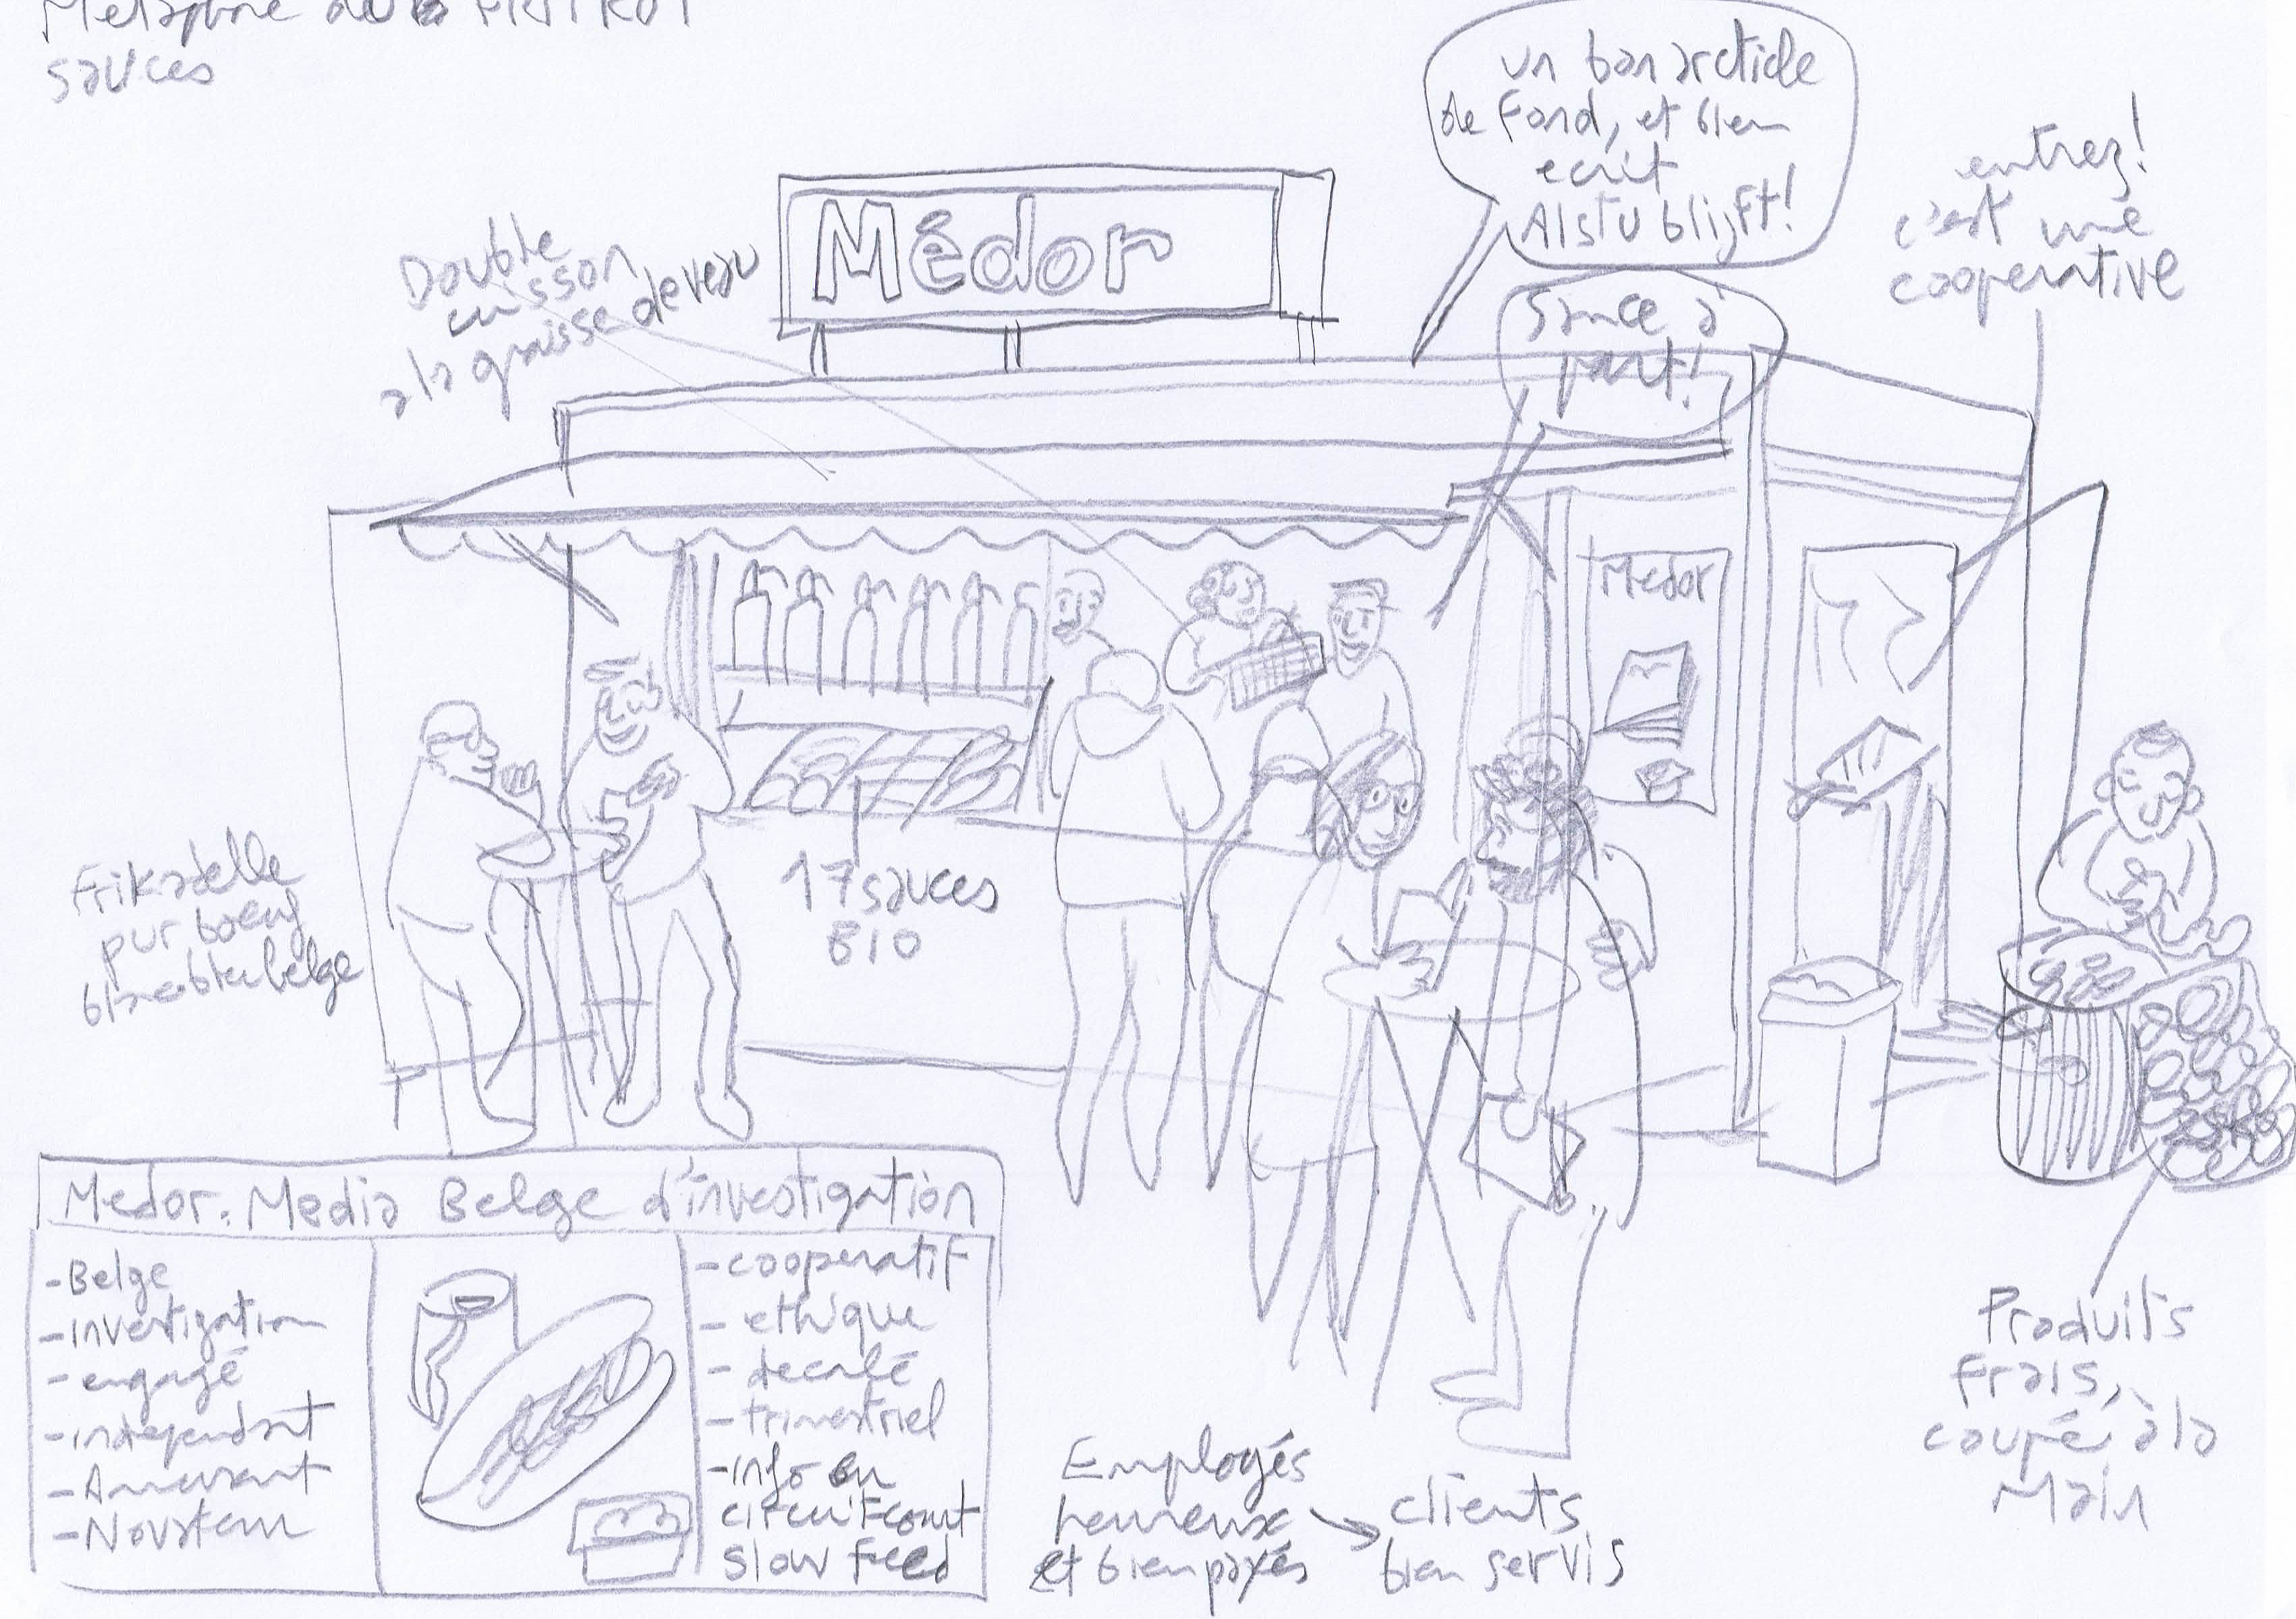 Metaphore de la FRITKOT
sauces
un bon article
de Fond, et bien
ecrit
Alstublijft!
sauce à
part!
entrez!
c'est une
cooperative
Double
cuisson
à la graisse de veau
Médor
Medor
17 sauces
BIO
Frikadelle
pur boeuf
blanc bleu belge
Medor: Media Belge d'investigation
-Belge
-investigation
-engagé
-independant
-Amusant
-Novateur
-cooperatif
-ethique
-decalé
-trimestriel
-info en
circuit court
slow Feed
Employés
heureux
et bien payés
clients
bien servis
Produits
frais,
coupé à la
Main